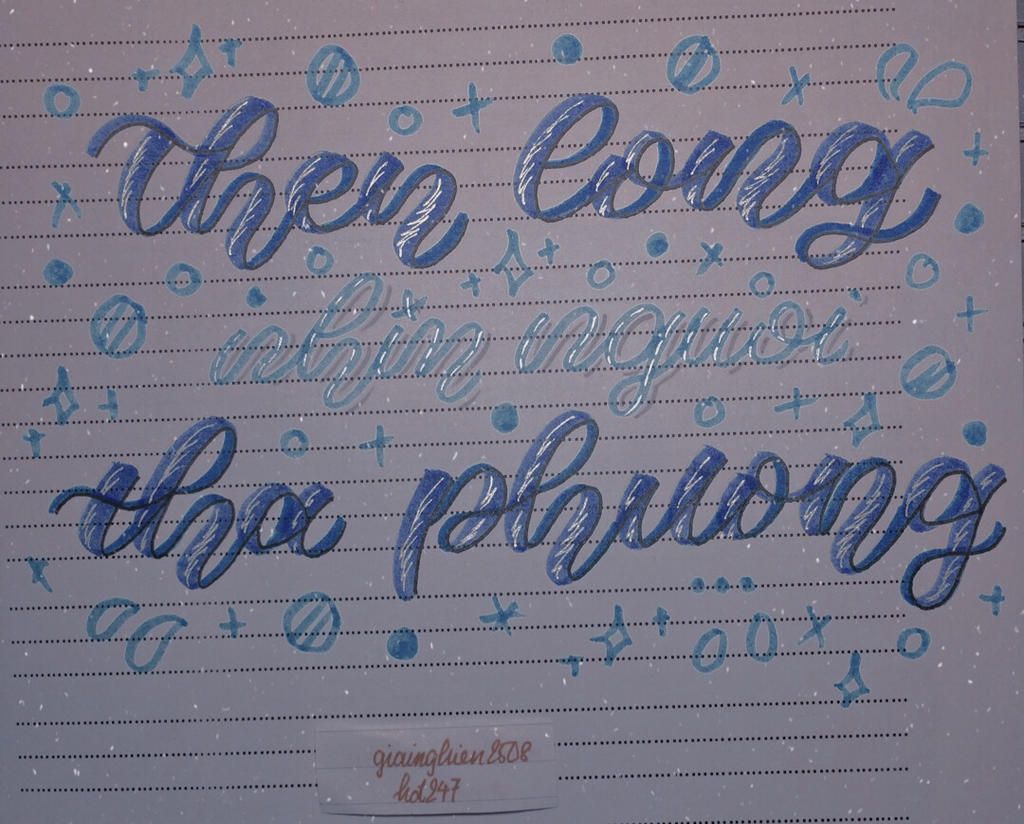 then long
nhin nguoi
tha phuong
giainghien2508
hd247